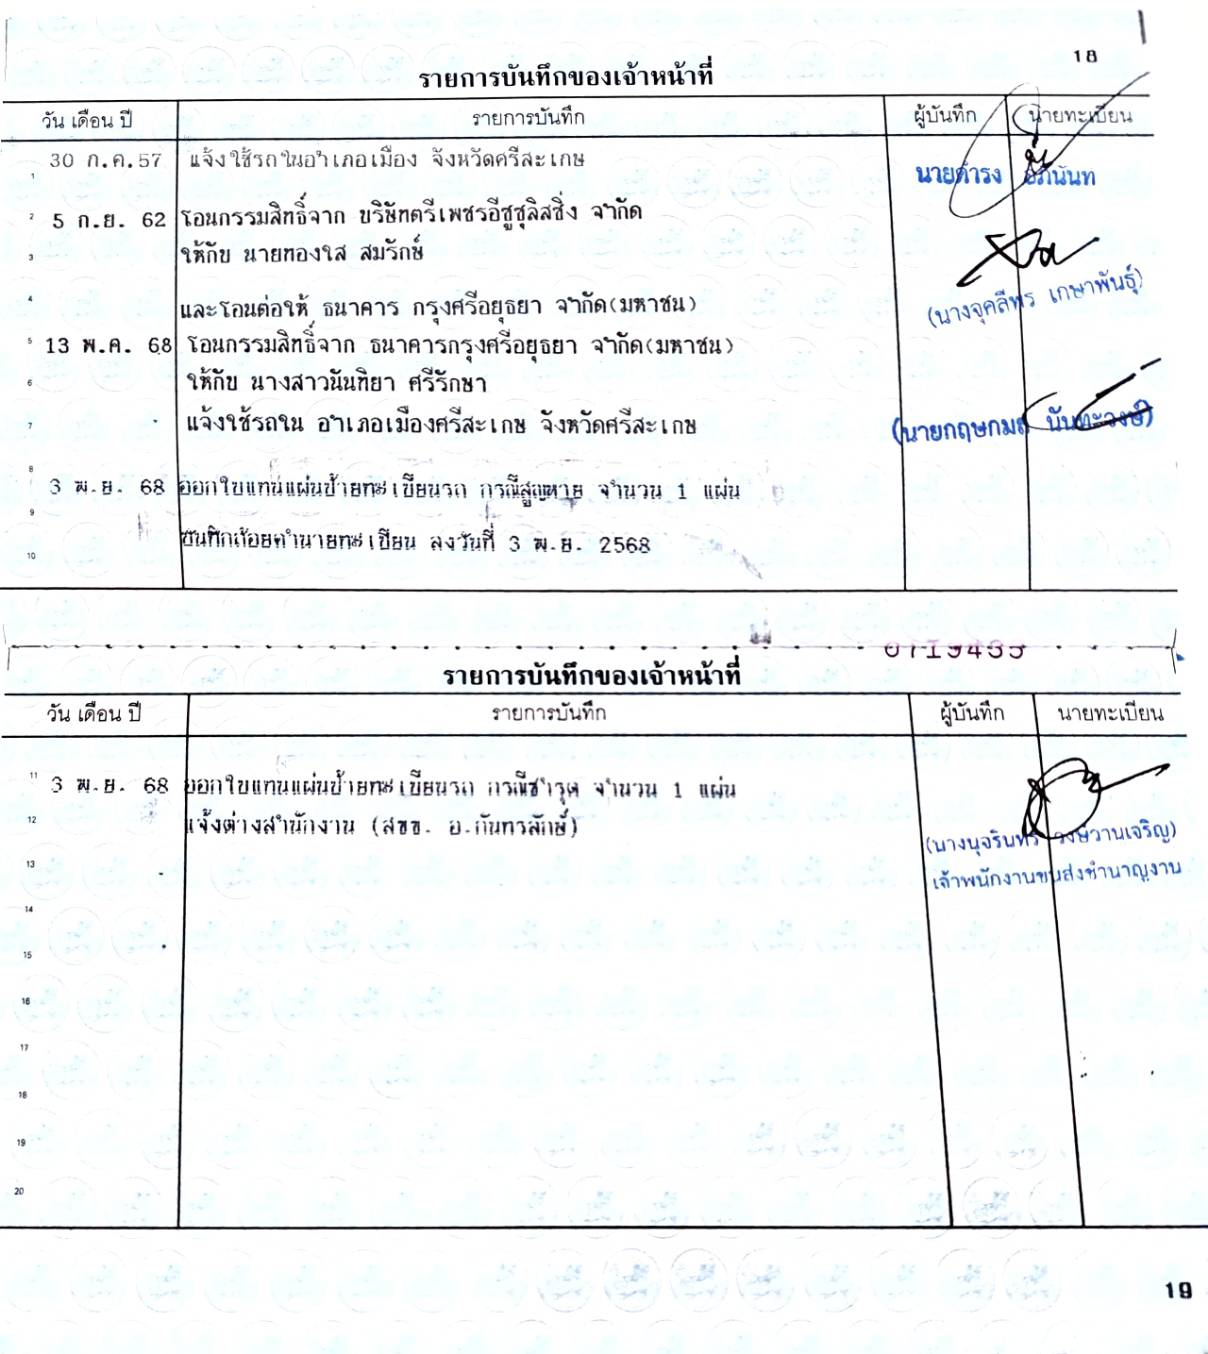 18
รายการบันทึกของเจ้าหน้าที่
วัน เดือน ปี รายการบันทึก ผู้บันทึก นายทะเบียน
1 30 ก.ค.57 แจ้งใช้รถในอำเภอเมือง จังหวัดศรีสะเกษ
นายดำรง
2 5 ก.ย. 62 โอนกรรมสิทธิ์จาก บริษัทตรีเพชรอีซูซุลิสซิ่ง จำกัด
3 ให้กับ นายทองใส สมรักษ์
4 และโอนต่อให้ ธนาคาร กรุงศรีอยุธยา จำกัด(มหาชน)
(นางจุคลีพร เกษาพันธุ์)
5 13 พ.ค. 68 โอนกรรมสิทธิ์จาก ธนาคารกรุงศรีอยุธยา จำกัด(มหาชน)
6 ให้กับ นางสาวนันทิยา ศรีรักษา
7 แจ้งใช้รถใน อำเภอเมืองศรีสะเกษ จังหวัดศรีสะเกษ
(นายกฤษกมล นันทะวงษ์)
8 3 พ.ย. 68 ออกใบแทนแผ่นป้ายทะเบียนรถ กรณีสูญหาย จำนวน 1 แผ่น
9 บันทึกถ้อยคำนายทะเบียน ลงวันที่ 3 พ.ย. 2568
10
รายการบันทึกของเจ้าหน้าที่
วัน เดือน ปี รายการบันทึก ผู้บันทึก นายทะเบียน
11 3 พ.ย. 68 ออกใบแทนแผ่นป้ายทะเบียนรถ กรณีชำรุด จำนวน 1 แผ่น
12 แจ้งต่างสำนักงาน (สขข. อ.กันทรลักษ์)
(นางนุจรินทร์ วงษ์วานเจริญ)
เจ้าพนักงานขนส่งชำนาญงาน
13
14
15
16
17
18
19
20
19